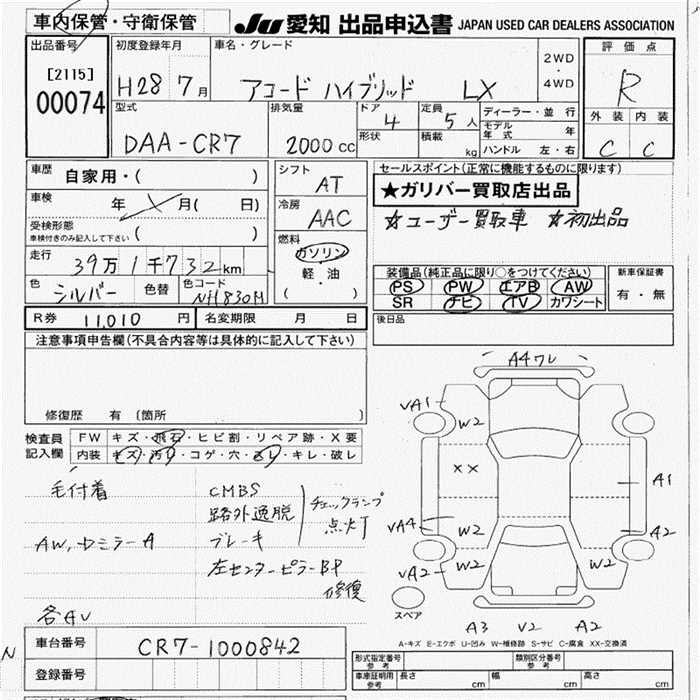 車内保管・守衛保管
JU 愛知 出品申込書 JAPAN USED CAR DEALERS ASSOCIATION
出品番号 初度登録年月 車名・グレード 評価点
[2115] 00074 H28 7月 アコード ハイブリッド LX 2WD・4WD R
型式 排気量 ドア 定員 ディーラー・並行 外装 内装
DAA-CR7 2000cc 4 5人 モデル年式 年 C C
形状 積載 kg ハンドル 左・右
車歴 自家用・( ) シフト AT セールスポイント(正常に機能するものに限ります)
車検 年 月( 日) 冷房 AAC ★ガリバー買取店出品
受検形態 車検付きのみ記入して下さい ( ) ☆ユーザー買取車 ☆初出品
走行 39万1千732km 燃料 ガソリン 軽・油 ( )
色 シルバー 色替 色コード NH830M
装備品(純正品に限り○をつけてください) 新車保証書
PS PW エアB AW 有・無
SR ナビ TV カワシート
R券 11,010円 名変期限 月 日 後日品
注意事項申告欄(不具合内容等は具体的に記入して下さい)
修復歴 有 〔箇所 〕
検査員記入欄 FW キズ・飛石・ヒビ割・リペア跡・X要
内装 キズ・汚れ・コゲ・穴・スレ・キレ・破レ
毛付着 CMBS
路外逸脱 チェックランプ点灯
AW, ドミラーA ブレーキ
左センターピラーBP修復
各AU
A4ワレ
VA1 W2
XX A1
VA4 W2 A2
VA2 W2 W2
スペア
A3 V2 A2
A-キズ E-エクボ U-凹み W-補修跡 S-サビ C-腐食 XX-交換済
N
車台番号 CR7-1000842
登録番号
形式指定番号 参考 類別区分番号 参考
車庫証明用 参考 長さ cm 幅 cm 高さ cm